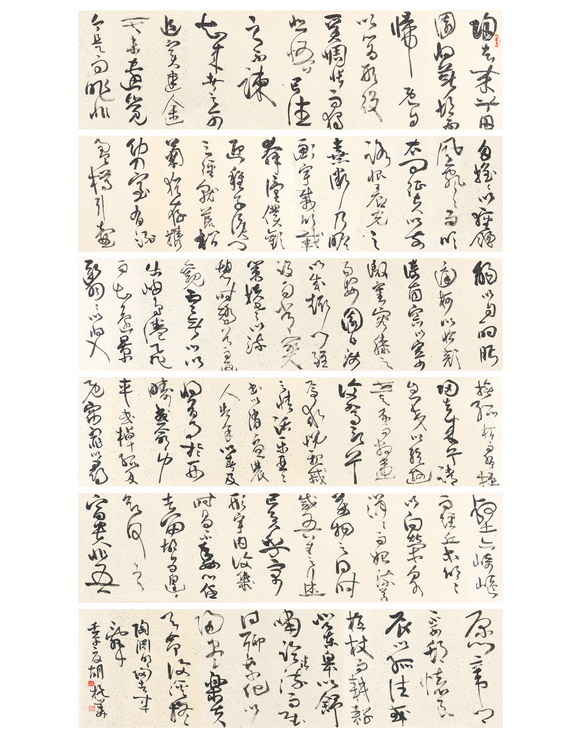 歸去來兮田
園將蕪胡不
歸既自
以心爲形役
奚惆悵而獨
悲悟已往
之不諫
知來者之可
追實迷途
其未遠覺
今是而昨非
舟遙遙以輕颺
風飄飄而吹
衣問征夫以前
路恨晨光之
熹微乃瞻
衡宇載欣載
奔僮僕歡
迎稚子候門
三徑就荒松
菊猶存攜
幼入室有酒
盈樽引壺
觴以自酌眄
庭柯以怡顏
倚南窗以寄
傲審容膝之
易安園日涉
以成趣門雖
設而常關
策扶老以流
憩時矯首而遐
觀雲無心以
出岫鳥倦飛
而知還景
翳翳以將入
撫孤松而盤桓
歸去來兮請
息交以絕遊
世與我而相遺
復駕言兮
焉求悅親戚
之情話樂琴
書以消憂農
人告余以春及
將有事於西
疇或命巾
車或棹孤舟
既窈窕以尋
壑亦崎嶇
而經丘木欣欣
以向榮泉
涓涓而始流善
萬物之得時
感吾生之行休
已矣乎寓
形宇內復幾
時曷不委心任
去留胡爲遑遑
欲何之
富貴非吾
願帝鄉
不可期懷良
辰以孤往或
植杖而耘耔
登東皋以舒
嘯臨清流而賦
詩聊乘化以
歸盡樂夫
天命復奚疑
陶淵明歸去來
辭